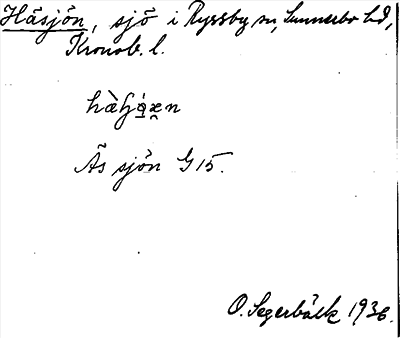 Håsjön, sjö i Ryssby sn, Sunnerbo hd,
Kronob. l.
Ås sjön G 15.
O. Segerbäck 1936.